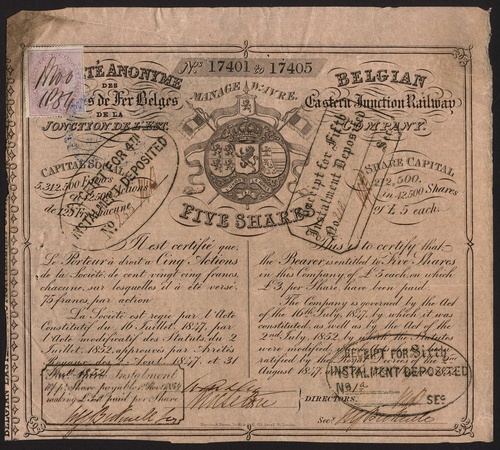 Nos 17401 to 17405
SOCIÉTÉ ANONYME
DES
de Fer Belges
DE LA
JONCTION DE L'EST.
BELGIAN
Eastern Junction Railway
COMPANY.
MANAGE WAVRE.
Nov 6
1854
CAPITAL SOCIAL
5,312,500 Francs
en 42,500 Actions
de 125 Fr. chacune.
FOR 4th
INSTALMENT DEPOSITED
No.
Receipt for Fifth
Instalment Deposited
No.
SHARE CAPITAL
212,500,
in 42500 Shares
of £5 each.
FIVE SHARES
Il est certifié que
Le Porteur a droit à Cinq Actions
de la Société, de cent vingt cinq francs
chacune, sur lesquelles il a été versé
75 francs par action
La Société est régie par l'Acte
Constitutif du 16 Juillet 1847, par
l'Acte modificatif des Statuts, du 2
Juillet 1852, approuvés par Arrêtés
1847, et 31
Instalment
Share payable Nov. 1854
making £ paid per Share
This is to certify that
the Bearer is entitled to Five Shares
in this Company of £5 each, on which
£3 per Share have been paid
The Company is governed by the Act
of the 16th July, 1847, by which it was
constituted, as well as by the Act of the
2nd July, 1852, by which the Statutes
were modified
ratified by the
August 1847
RECEIPT FOR Sixth
INSTALMENT DEPOSITED
No
SEC
DIRECTORS.
Secy